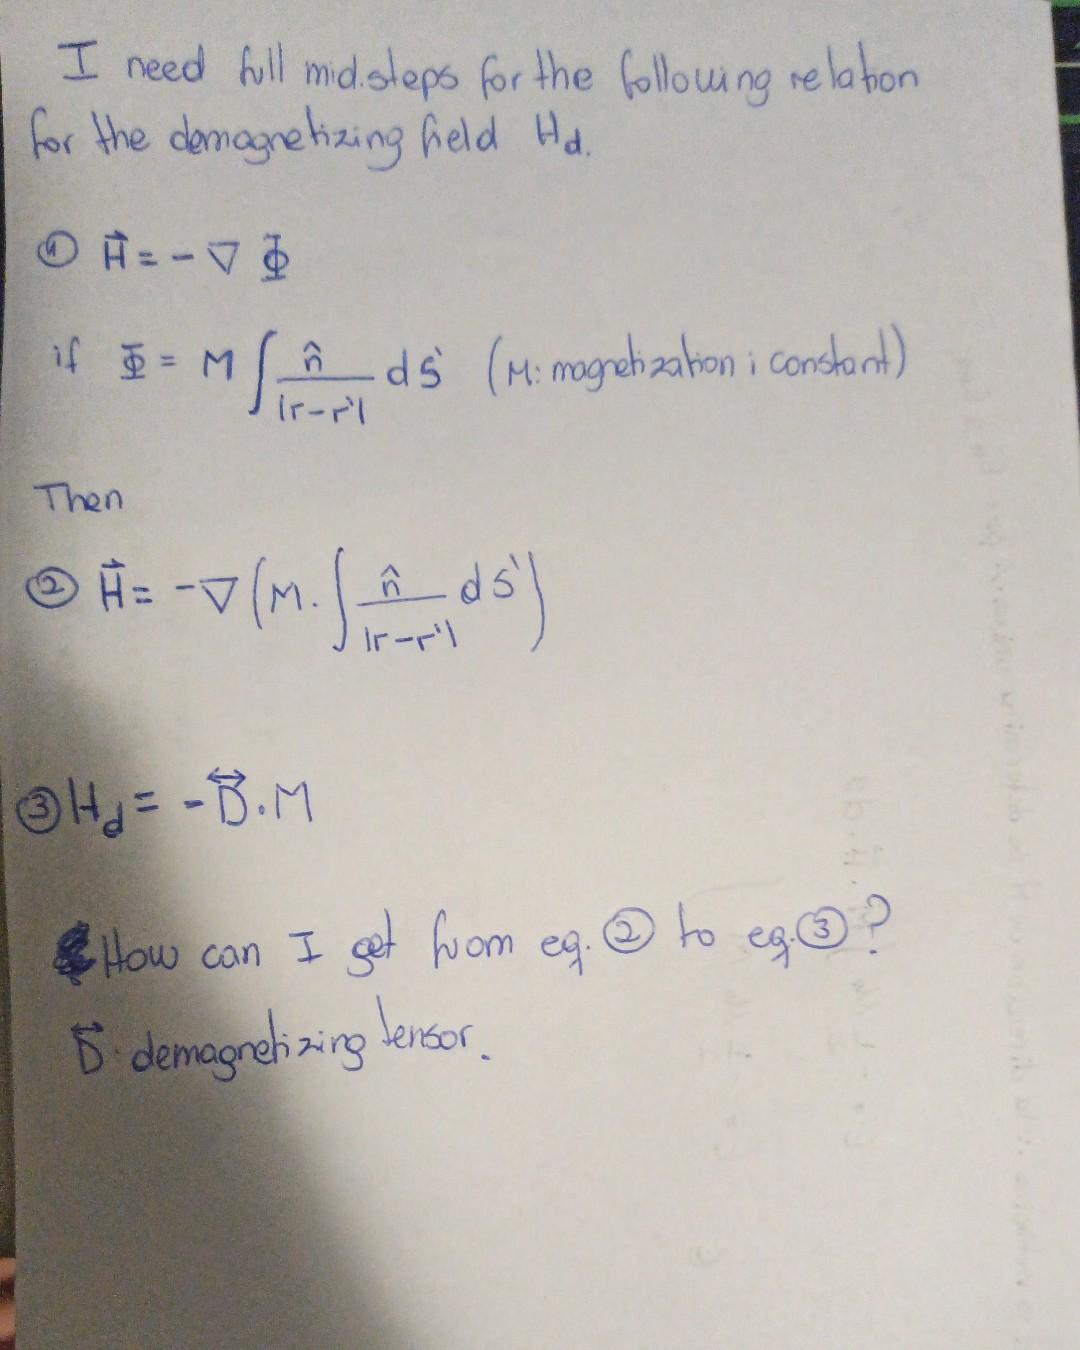 I need full mid.steps for the following relation
for the demagnetizing field Hd.
① H⃗ = - ∇ Φ
if Φ = M ∫ n̂ / |r-r'| dS' (M: magnetization; constant)
Then
② H⃗ = -∇ (M. ∫ n̂ / |r-r'| dS')
③ Hd = - D⃡ . M
How can I get from eq. ② to eq. ③?
D⃡ : demagnetizing tensor.